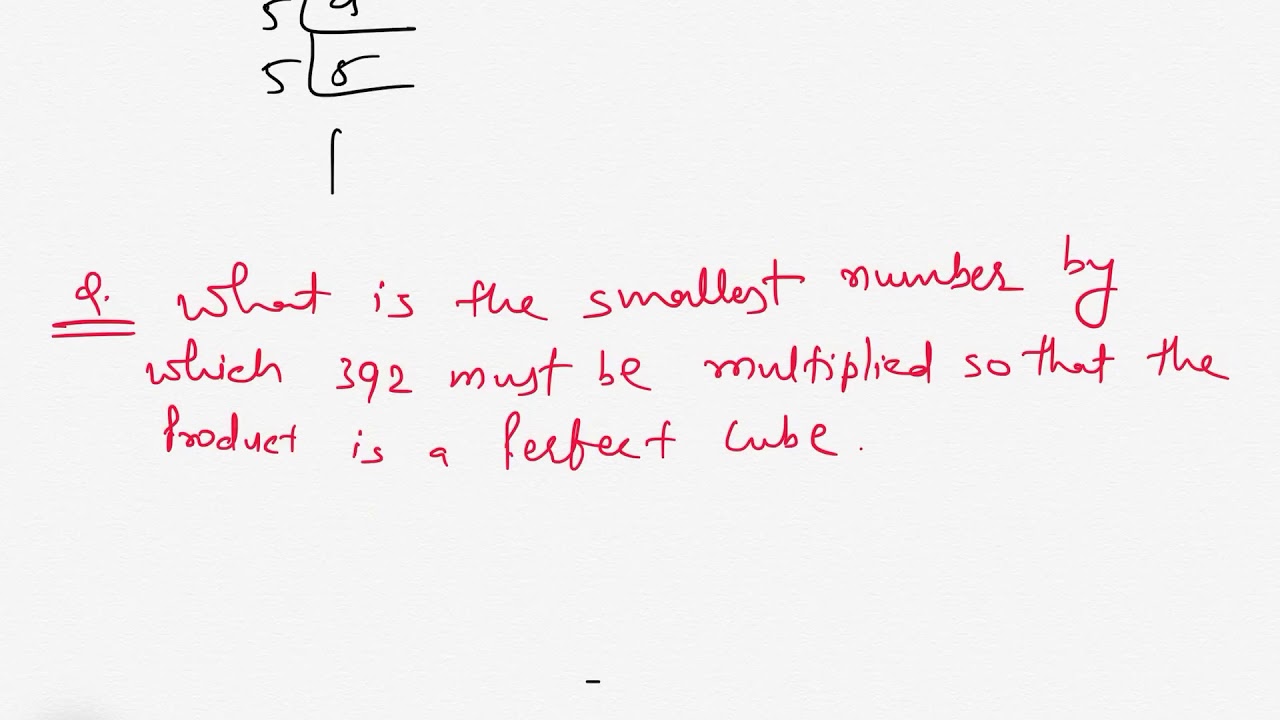 5
5 5
1
Q. What is the smallest number by
which 392 must be multiplied so that the
Product is a Perfect cube.